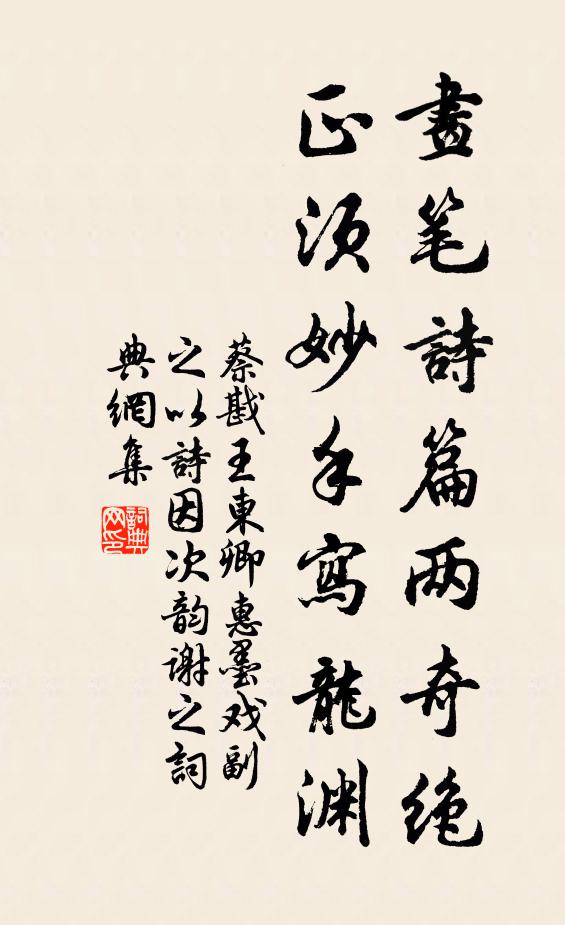 畫笔詩篇两奇绝
正须妙手寫龍渊
蔡戡王東卿惠墨戏副
之以詩因次韵谢之詞
典網集
詞典
网印